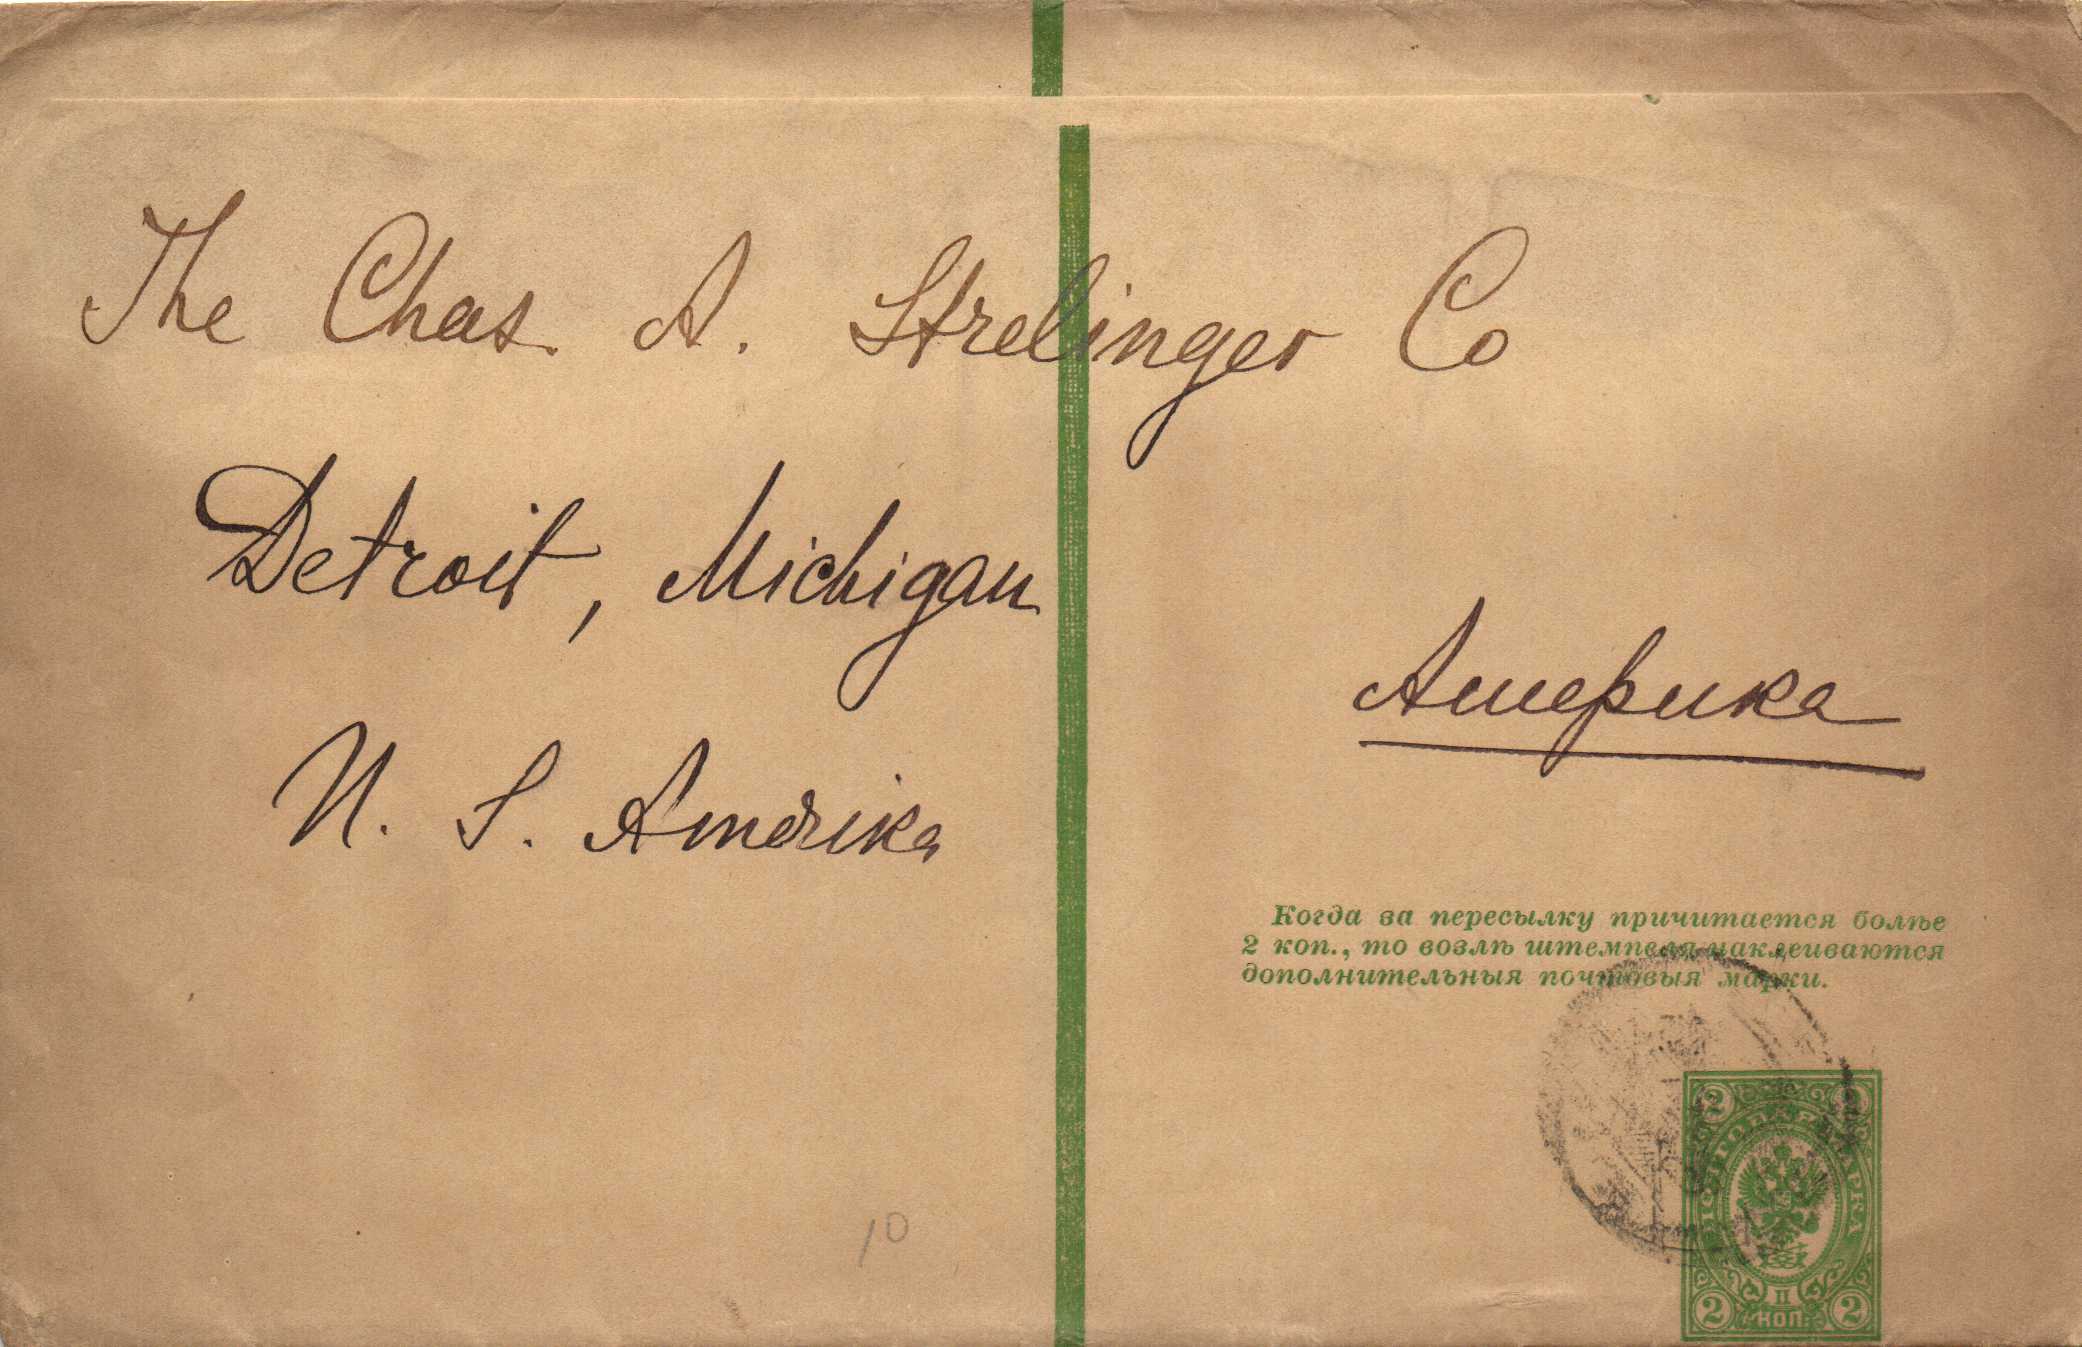 The Chas. A. Strelinger Co
Detroit, Michigan
U. S. Amerika
Америка
Когда за пересылку причитается болѣе
2 коп., то возлѣ штемпеля наклеиваются
дополнительныя почтовыя марки.
10
2 2
ПОЧТОВАЯ МАРКА
II
2 КОП. 2